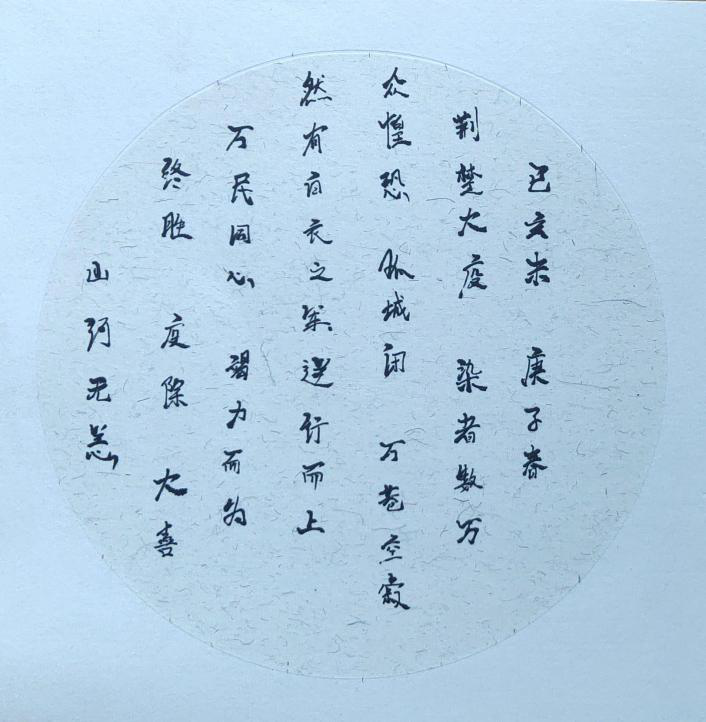 己亥末 庚子春
荆楚大疫 染者数万
众惶恐 孤城闭 万巷空寂
然有白衣之军逆行而上
万民同心 竭力而为
终胜 疫除 大喜
山河无恙